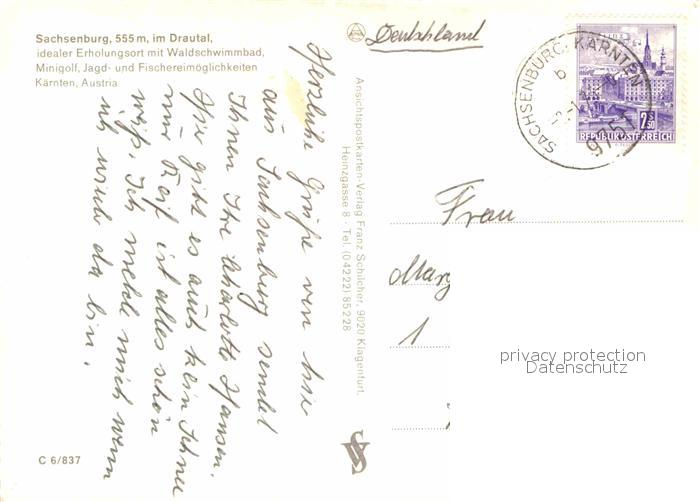 Sachsenburg, 555 m, im Drautal,
idealer Erholungsort mit Waldschwimmbad,
Minigolf, Jagd- und Fischereimöglichkeiten
Kärnten, Austria
Herzliche Grüße von hier
aus Sachsenburg sendet
Ihnen Ihre Charlotte Hansen.
Hier gibt es auch kein Schnee
nur Reif ist alles schön
weiß. Ich melde mich wenn
ich wieder da bin.
C 6/837
Ansichtspostkarten-Verlag Franz Schilcher, 9020 Klagenfurt,
Heinzgasse 8 · Tel. (04222) 85 2 28
Deutschland
SACHSENBURG, KÄRNTEN
b
9751
2.50
REPUBLIK ÖSTERREICH
Frau
Marg
1
privacy protection
Datenschutz